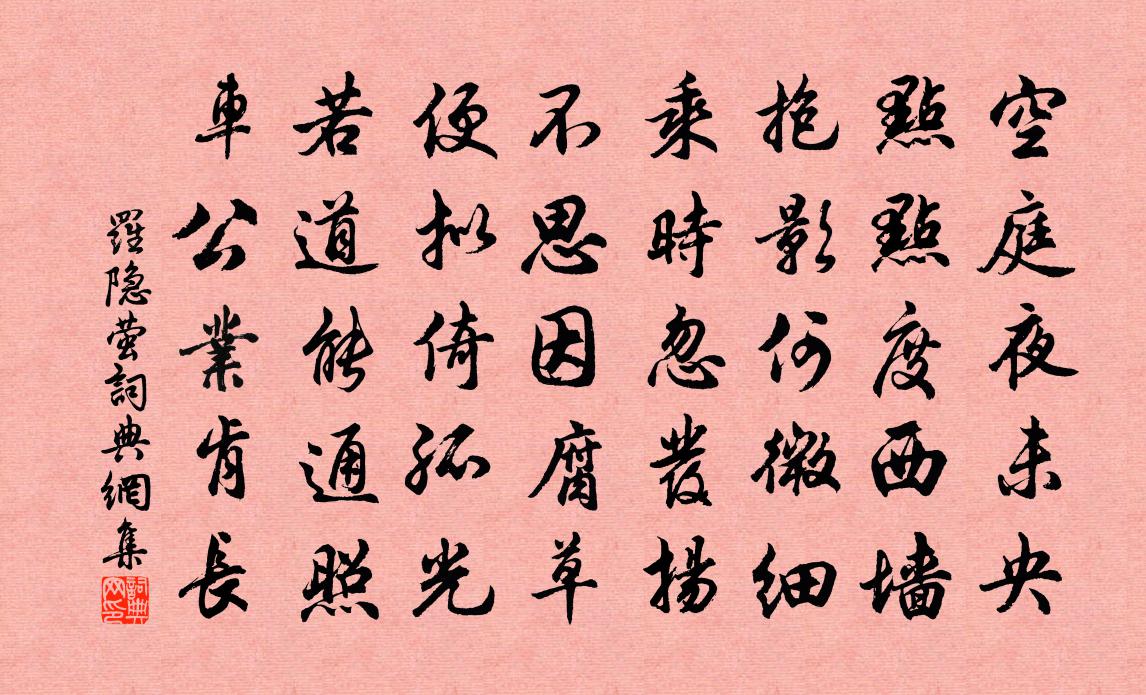 空庭夜未央
點點度西墻
抱影何微細
乘時忽發揚
不思因腐草
便拟倚孤光
若道能通照
車公業肯長
羅隐萤詞典網集
詞典网印